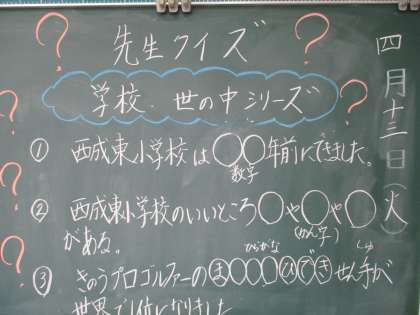 四月十三日(火)
先生クイズ
学校・世の中シリーズ
① 西成東小学校は〇〇年前にできました。
数字
② 西成東小学校のいいところ〇や〇や〇
がある。
(かん字)
ひらがな
③ きのうプロゴルファーのま〇〇〇ひできせん手が
世界で1位になりました